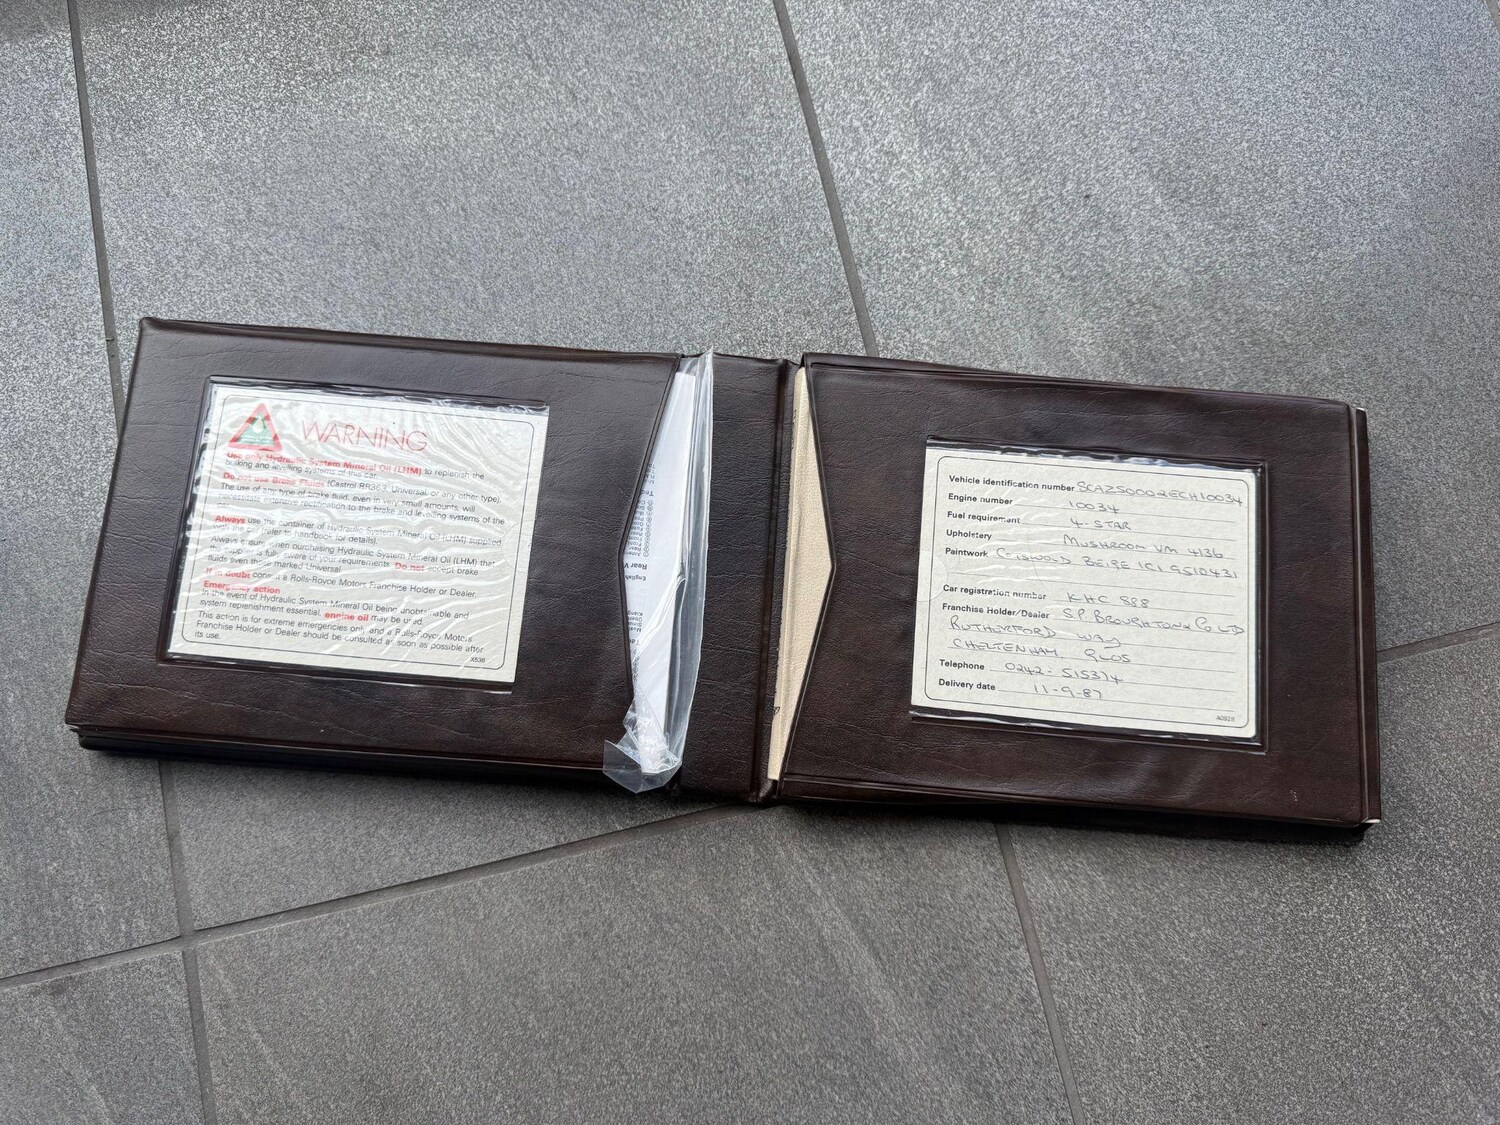 WARNING
Use only Hydraulic System Mineral Oil (LHM) to replenish the
braking and levelling systems of this car.
Do not use Brake Fluids (Castrol RR363, Universal, or any other type).
The use of any type of brake fluid, even in very small amounts, will
necessitate extensive rectification to the brake and levelling systems of the
Always use the container of Hydraulic System Mineral Oil (LHM) supplied
with the car (refer to handbook for details).
Always ensure when purchasing Hydraulic System Mineral Oil (LHM) that
the supplier is fully aware of your requirements. Do not accept brake
fluids even those marked Universal
If in doubt consult a Rolls-Royce Motors Franchise Holder or Dealer.
Emergency action
In the event of Hydraulic System Mineral Oil being unobtainable and
system replenishment essential, engine oil may be used.
This action is for extreme emergencies only and a Rolls-Royce Motors
Franchise Holder or Dealer should be consulted as soon as possible after
its use.
X536
Rear V
English
Vehicle identification number SCAZS0002ECH10034
Engine number 10034
Fuel requirement 4-STAR
Upholstery MUSHROOM VM 4136
Paintwork COTSWOLD BEIGE 101 9510431
Car registration number KHC 888
Franchise Holder/Dealer S.P. BROUGHTON & CO LTD
RUTHERFORD WAY
CHELTENHAM GLOS
Telephone 0242-515374
Delivery date 11-9-87